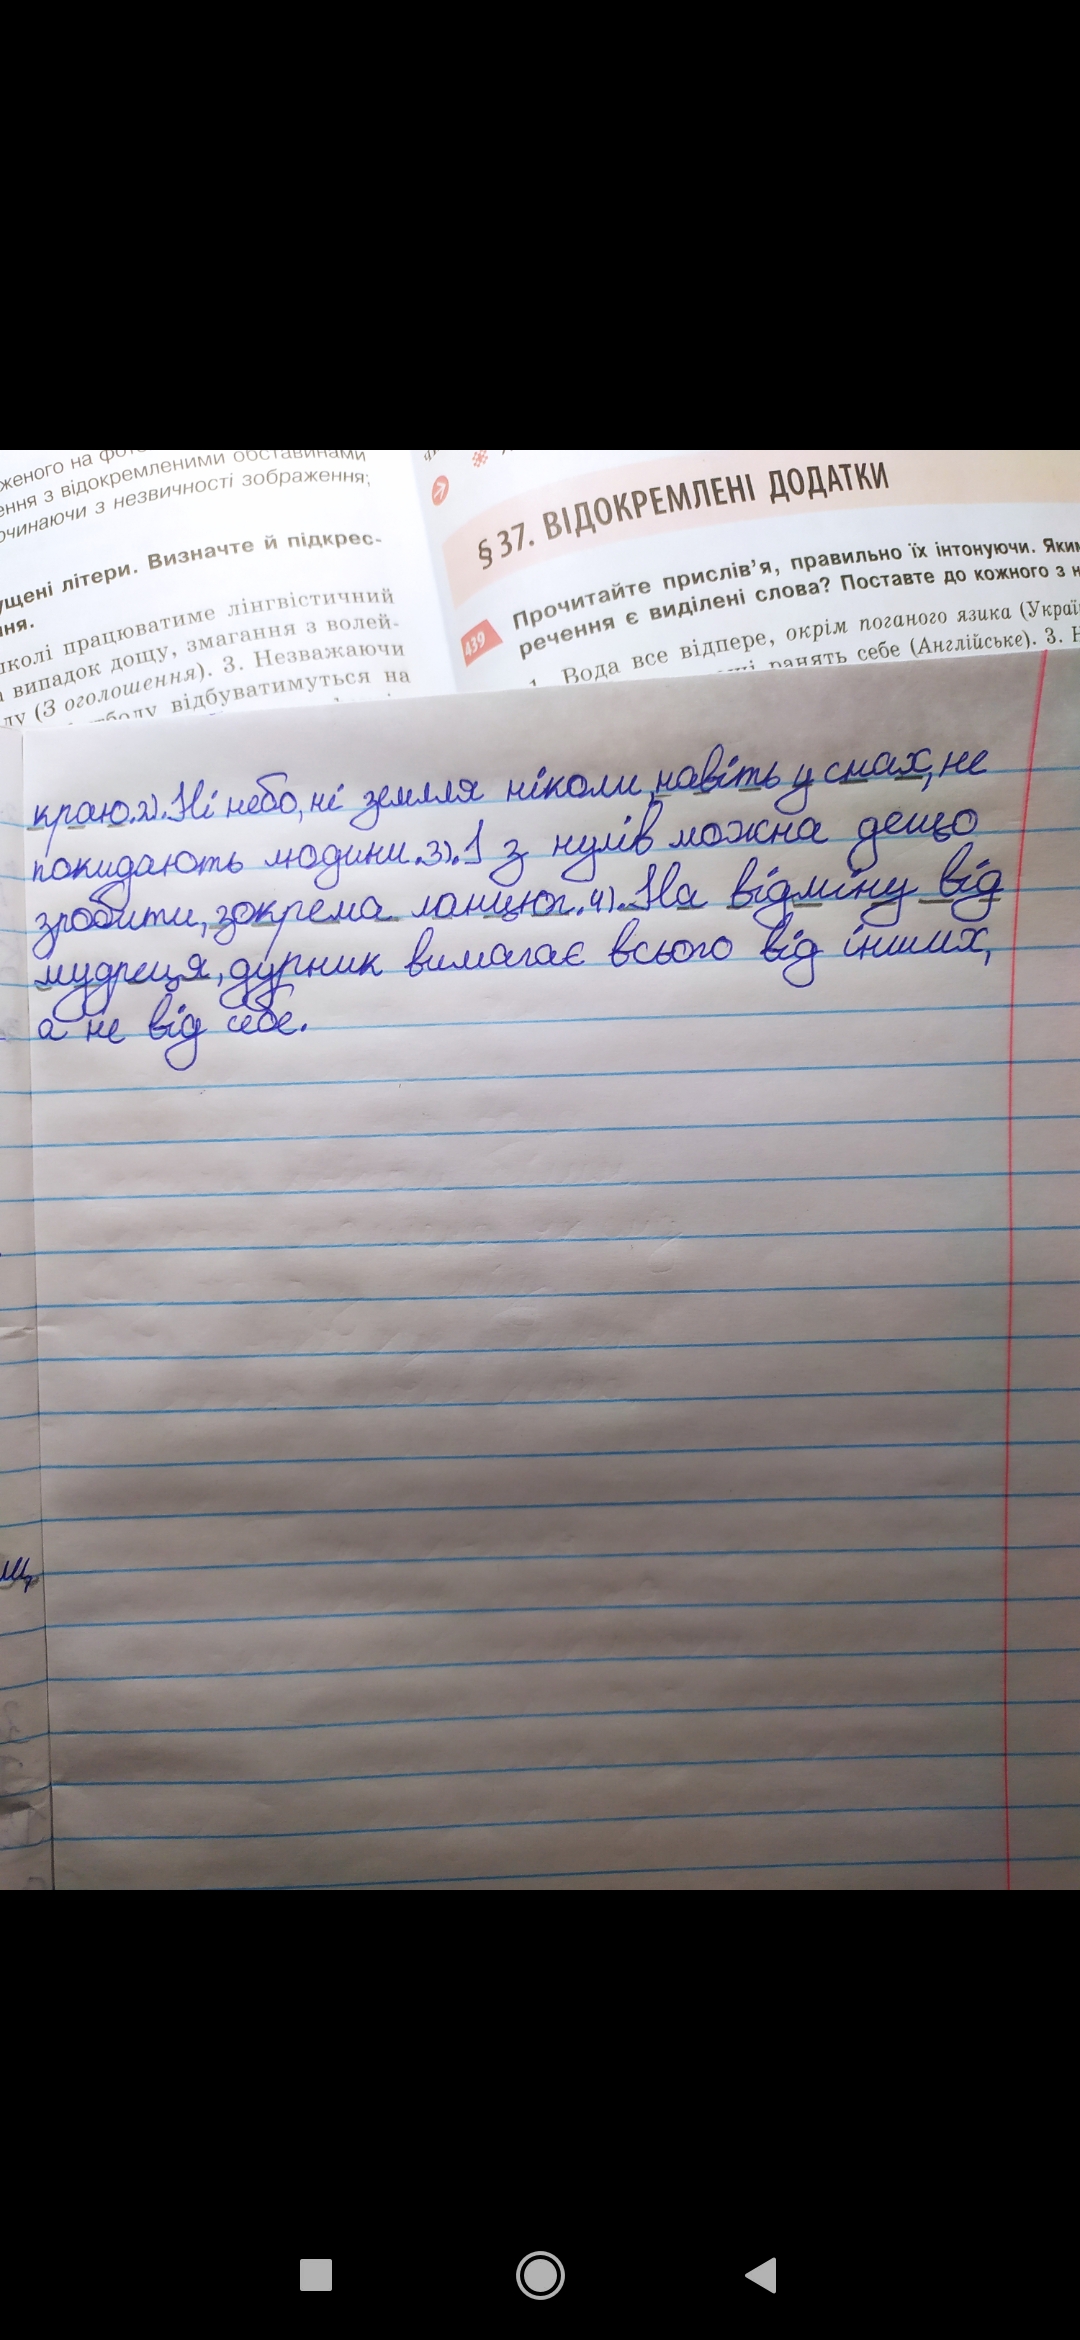 женого на
ення з відокремленими обставинами
очинаючи з незвичності зображення;
ущені літери. Визначте й підкрес-
ня.
школі працюватиме лінгвістичний
випадок дощу, змагання з волей-
ду (З оголошення). 3. Незважаючи
тболу відбуватимуться на
§ 37. ВІДОКРЕМЛЕНІ ДОДАТКИ
439
Прочитайте прислів’я, правильно їх інтонуючи. Яким
речення є виділені слова? Поставте до кожного з н
1. Вода все відпере, окрім поганого язика (Украї
ранять себе (Англійське). 3. Н
краю.2).Ні небо, ні земля ніколи, навіть у снах, не
покидають людини.3).І з нулів можна дещо
зробити, зокрема ланцюг.4).На відміну від
мудреця, дурник вимагає всього від інших,
а не від себе.